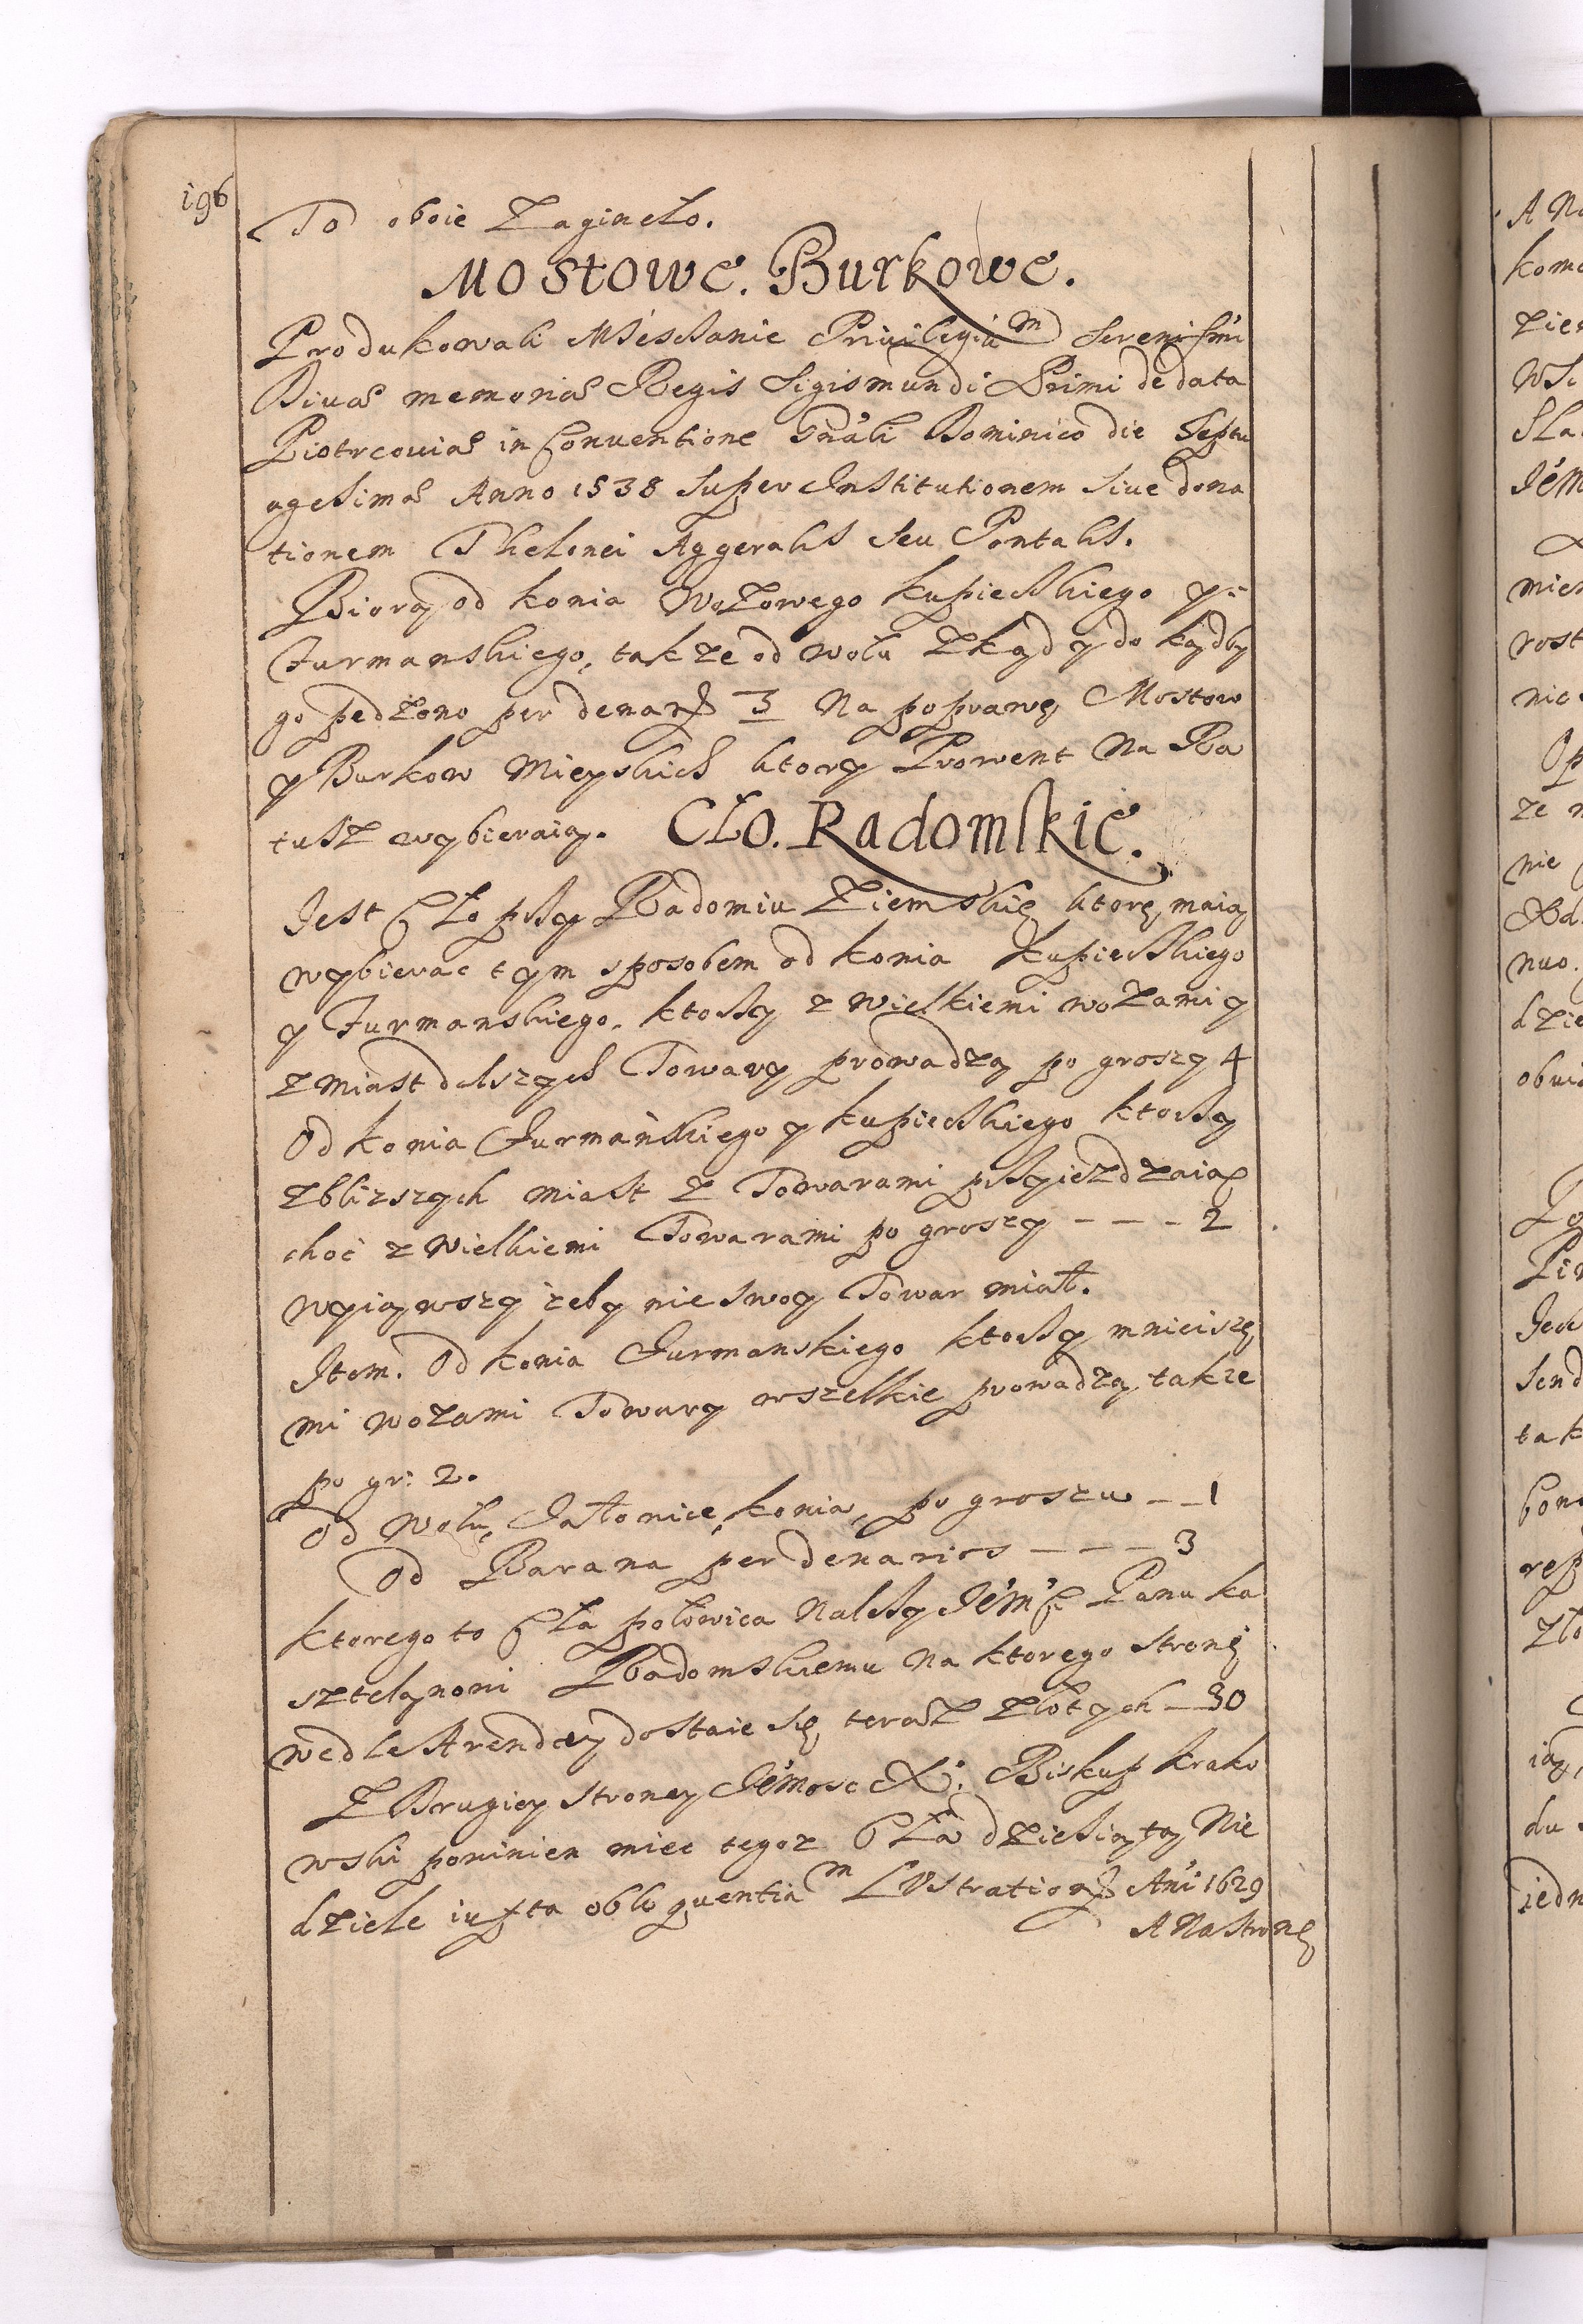 196
To oboie Zagineło.
Mostowe. Burkowe.
Produkowali Miesczanie Priuilegiũm Serenissmi
Diuae memoriae Regis Sigismundi Primi de data
Piotrcouiae in Conuentione Gnãli Dominico die Septu
agesimae Anno 1538 super Institutionem siue dona
tionem Thelonei Aggeralis seu Pontalis.
Biorą od konia wozowego kupieckiego y
Furmanskiego, takze od wołu zkąd y do kądby
go pędzono per denar 3 Na poprawę Mostow
y Burkow Mieyskich ktory Prowent Na Ra
tusz wybieraią. Cło. Radomskie.
Jest Cło przy Radomiu Ziemskie ktore maią
wybierac tym sposobem od konia Kupieckiego
y Furmanskiego, ktorzy z wielkiemi wozami y
z miast dalszych Towary prowadzą po groszy 4
Od konia Furmańskiego y kupieckiego ktorzy
z blizszych miast z Towarami przyiezdzaią
choć z wielkiemi Towarami po groszy - - - 2
wyiąwszy żeby nie swoy Towar miał.
Item. Od konia Furmanskiego ktorzy mnieisze
mi wozami Towary wszelkie prowadzą, takze
po gr: 2.
Od wołu, Jałowice, konia, po groszu - - 1
Od Barana per denarios - - - 3
ktorego to Cła połowica Należy Jem̃ci Panu ka
sztelanowi Radomskiemu na ktorego stronę
wedle Arendey dostaie się teraz złotych - 30
Z Drugiey strony Jẽmosc X. Biskup krako
wski powinien miec tegoz Cła dziesiątą Nie
dziele iuxta obloquentiam Lustrationem Ani 1629
A Na stronę